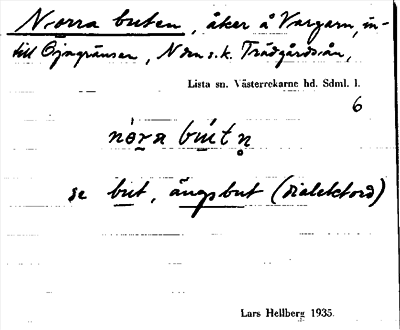 Norra buten, åker å Vargarn, in-
till Öjagränsen, N den s.k. Trädgårdsån,
Lista sn. Västerrekarne hd. Sdml. l.
6
nòra bùtn̥
se but, ängsbut (dialektord)
Lars Hellberg 1935.